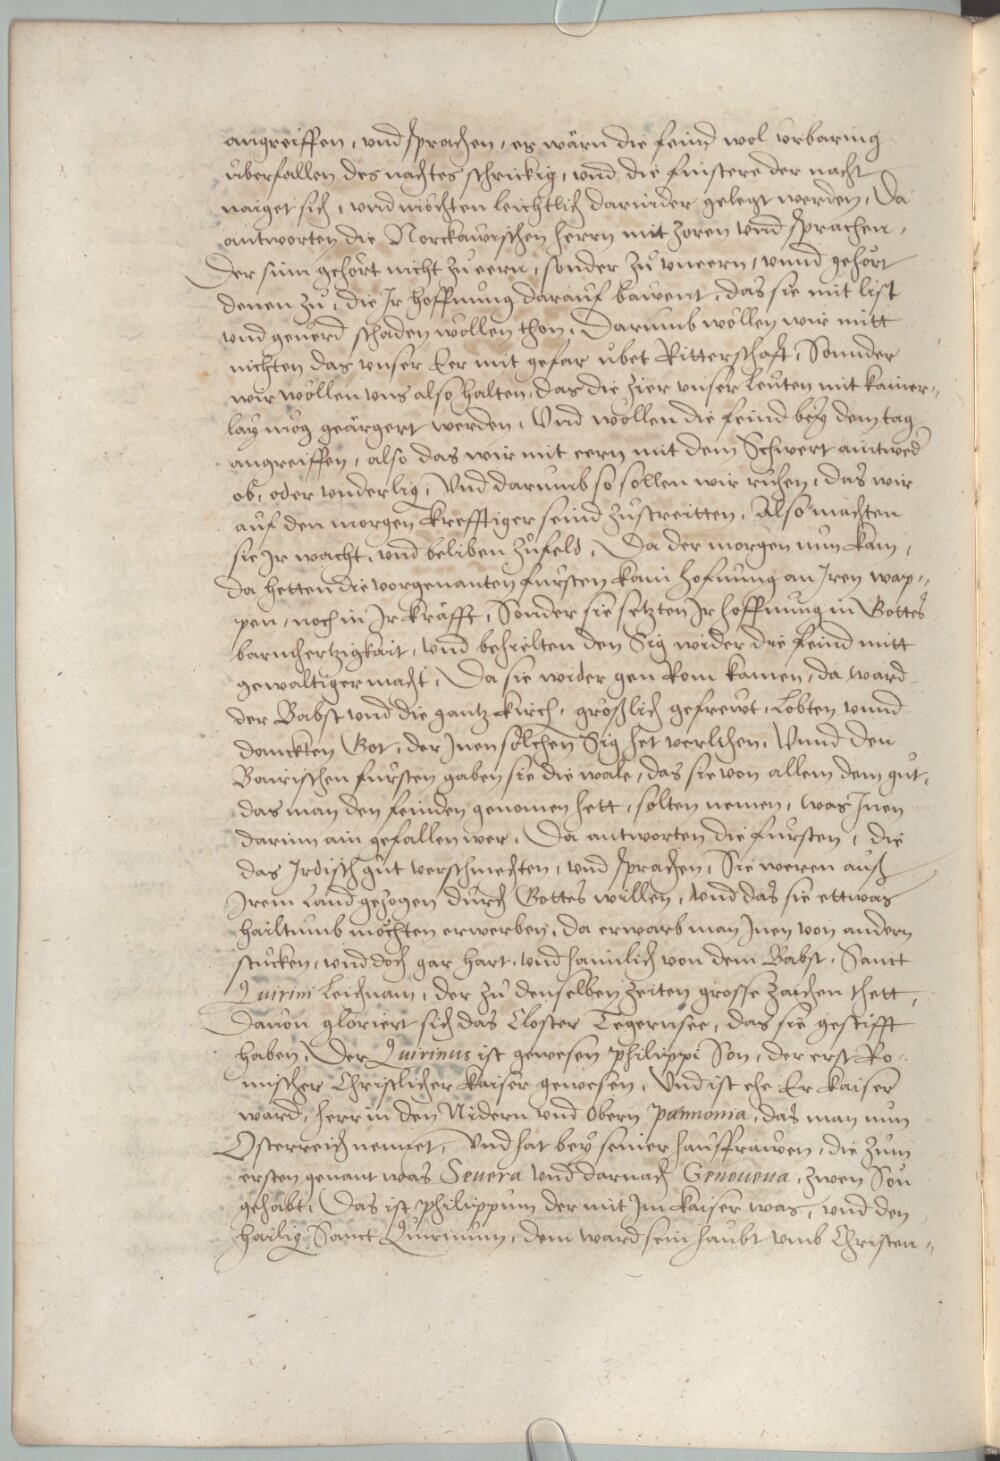 angreiffen, vnd sprachen, es wärn die feind wol vrbaring
überfallen des nachtes schrickig, vnd die finstere der nacht
naiget sich, vnd möchten leichtlich darnider gelegt werden, Da
antworten die Norckawischen herrn mit zoren vnd sprachen,
Der sinn gehört nicht zu eern, sonder zu vneern, vnnd gehört
denen zu, die Ir hoffnung darauf bawent, das sie mit list
vnd geuerd schaden wöllen thon, Darumb wöllen wir mitt
nichten das vnser Eer mit gefar übet Ritterschafft, Sonnder
wir wöllen vns also halten, das die zier vnser leuten mit kainer=
lay mög geärgert werden, Vnd wöllen die feind bey dem tag
angreiffen, also das wir mit eern mit dem Schwert aintwed
ob, oder vnderlig, Vnd darumb so sollen wir ruhen, das wir
auf den morgen krefftiger seind zustreitten, Also machten
sie Ir wacht, vnd beliben zufeld, Da der morgen nun kam,
da hetten die vorgenanten fürsten kain hofnung an Iren wap=
pen, noch in Ir kräfft, Sonder sie setzten Ir hoffnung in Gottes
barmhertzigkait, vnd behielten den Sig wider die feind mitt
gewaltiger macht, Da sie wider gen Rom kamen, da ward
der Babst vnd die gantz kirch, größlich gefrewt, Lobten vnnd
danckten Got, der Inen sölchen Sig het verlihen, Vnnd den
Bairischen fürsten gaben sie die wale, das sie von allem dem gut,
das man den feinden genomen hett, solten nemen, was Inen
darinn ain gefallen wer, Da antworten die fürsten, die
das Irdisch gut verschmechten, vnd sprachen, Sie weren auß
Irem Land gezogen durch Gottes willen, vnd das sie ettwas
hailtumb möchten erwerben, da erwarb man Inen von andern
stucken, vnd doch gar hart, vnd haimlich von dem Babst, Sanct
Quirini leichnam, der zu denselben zeiten grosse zaichen thett,
Dauon gloriert sich das Closter Tegernsee, das sie gestifft
haben, Der Quirinus ist gewesen philippi Son, der erst Rö=
mischer Christlicher kaiser gewesen, Vnd ist ehe Er kaiser
ward, herr in den Nidern vnd Obern pannonia, das man nun
Österreich nennet, Vnd hat bey seiner haußfrawen, die zum
ersten genant was Seuera vnd darnach Genoueua, zwen Sön
gehabt, Das ist philippum der mit Im kaiser was, vnd den
hailig Sanct Quirinum, dem ward sein haubt vmb Christen=